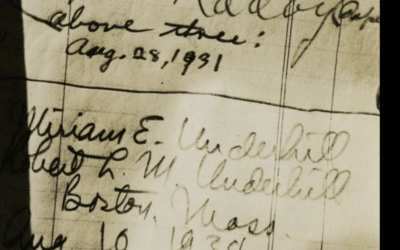 above three:
Aug. 28, 1931
Miriam E. Underhill
Robert L. M. Underhill
Boston, Mass.
Aug 10